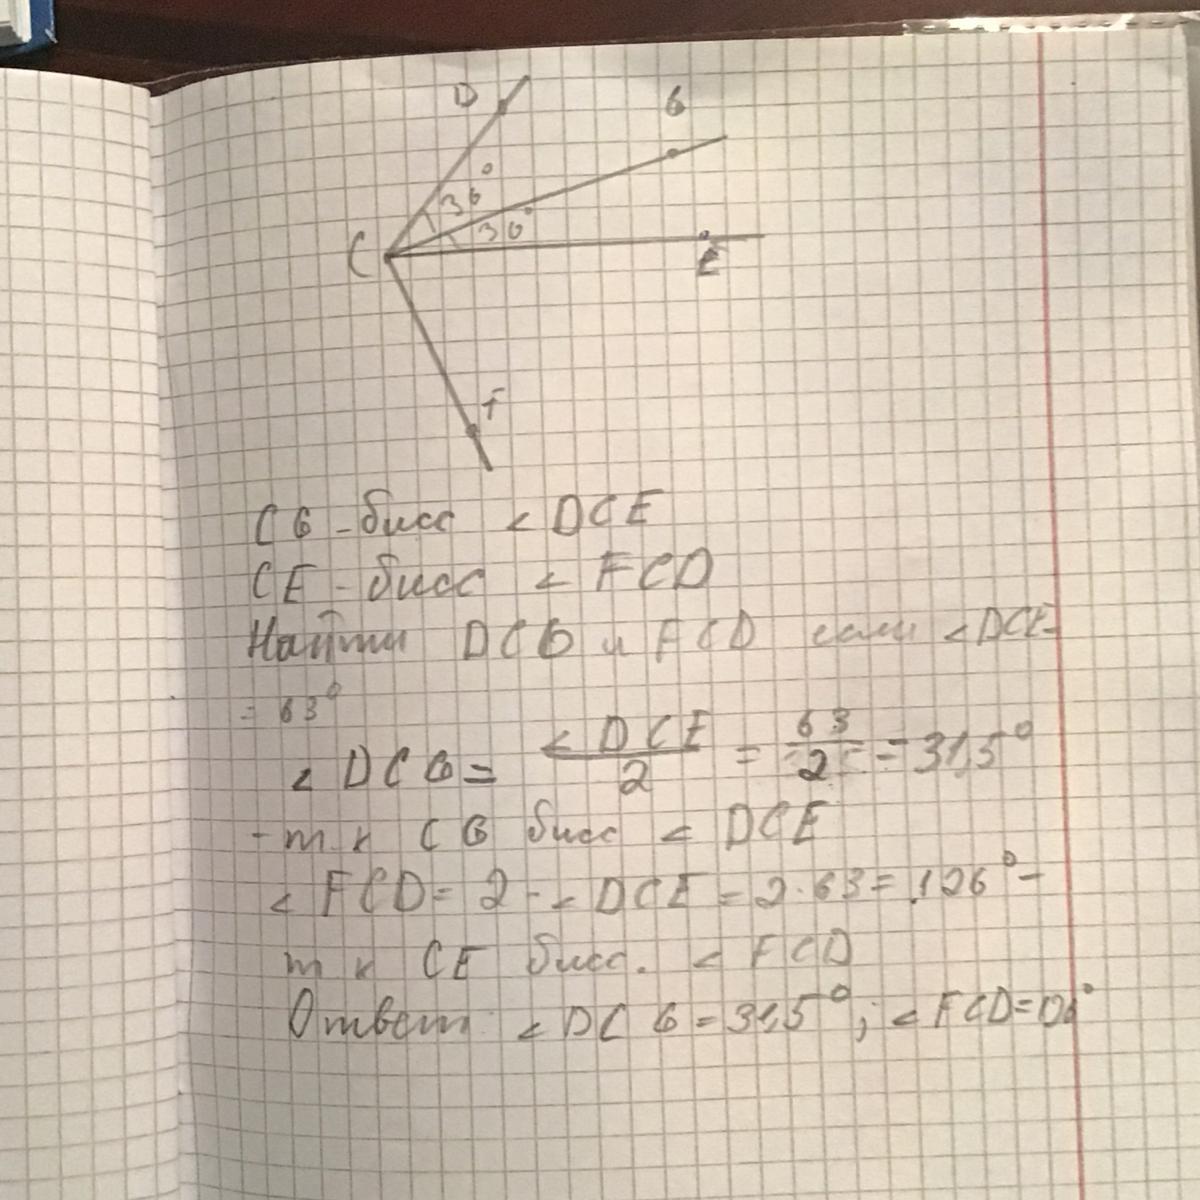 D
G
36°
30°
C
E
F
CG - бисс < DCE
CE - бисс < FCD
Найти DCG и FCD если < DCE
= 63°
< DCG = < DCE / 2 = 63 / 2 = 31,5°
- т к CG бисс < DCE
< FCD = 2 · < DCE = 2 · 63 = 126° -
т к CE бисс. < FCD
Ответ: < DCG = 31,5°; < FCD =